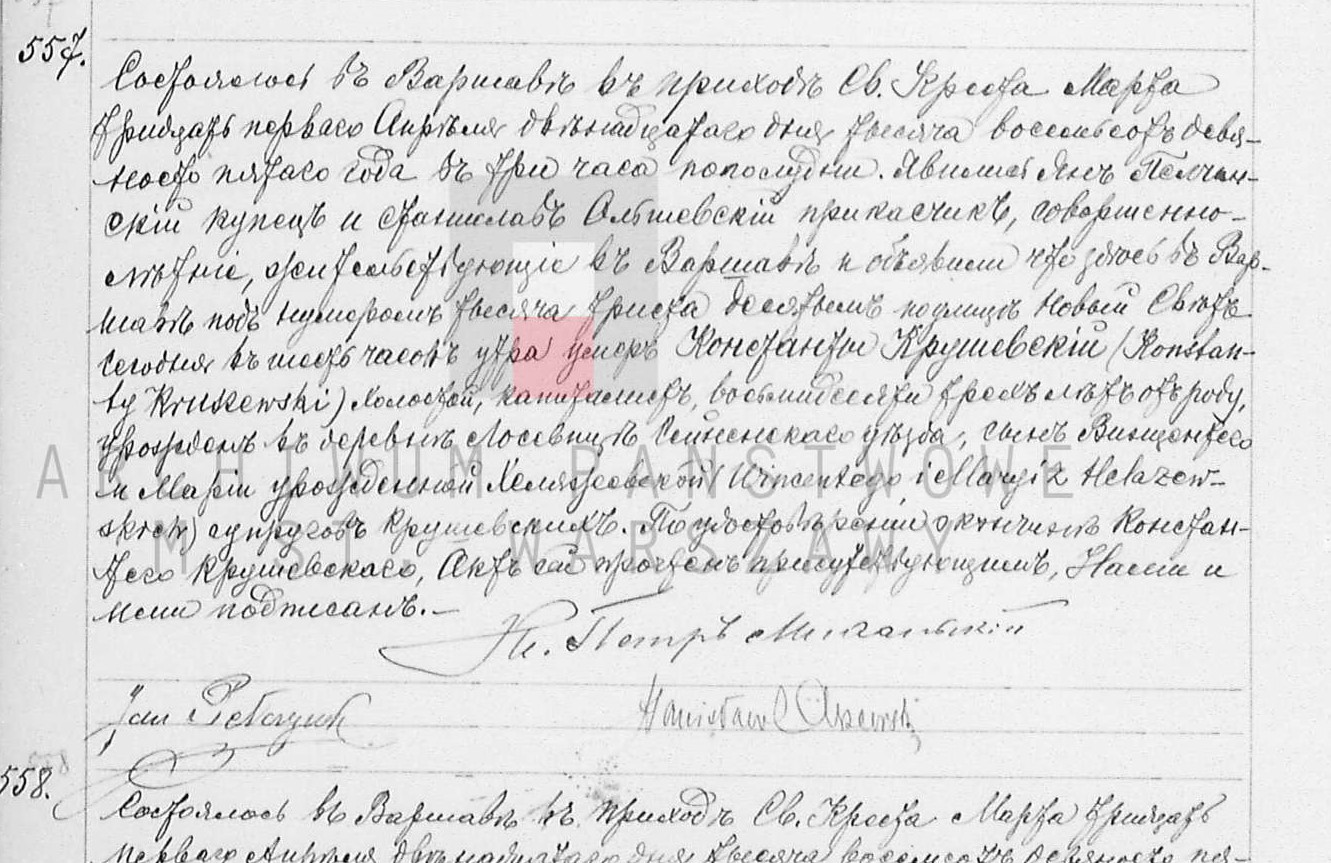 557.
Состоялось въ Варшавѣ въ приходѣ Св. Креста Марта
тридцать перваго Апрѣля двѣнадцатаго дня тысяча восемьсотъ девя-
носто пятаго года въ три часа пополудни. Явились Янъ
скій купецъ и Станиславъ Ольшевскій прикасчикъ, совершенно-
лѣтніе, жительствующіе въ Варшавѣ и объявили что здѣсь въ Вар-
шавѣ подъ нумеромъ тысяча триста десятымъ по улицѣ Новый Свѣтъ
сегодня въ шесть часовъ утра умеръ Константы Крушевскій (Konstan-
ty Kruszewski) холостой, капиталистъ, восьмидесяти трехъ лѣтъ отъ роду,
урожденъ въ деревнѣ Сейненскаго уѣзда, сынъ Винцентего
и Маріи урожденной (Wincentego i Maryi z
skich) супруговъ Крушевскихъ. По удостовѣреніи о кончинѣ Констан-
тего Крушевскаго, Актъ сей прочтенъ присутствующимъ, Нами и
ими подписанъ.—
Кс. Петръ
Jan
Stanisław
558.
Состоялось въ Варшавѣ въ приходѣ Св. Креста Марта тридцать
перваго Апрѣля двѣнадцатаго дня тысяча восемьсотъ девяносто пя-
ARCHIWUM PAŃSTWOWE
M. ST. WARSZAWY